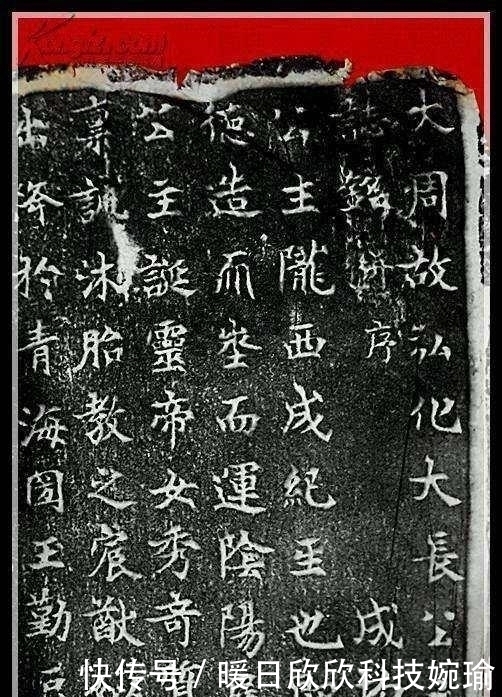 大周故弘化大長公
誌銘并序 成
公主隴西成紀𤯔也
德造𠀑埊而運陰陽
公主誕靈帝女秀奇質
稟訓沐胎教之宸猷
出降於青海圀王勤豆
快传号/暖日欣欣科技婉瑜